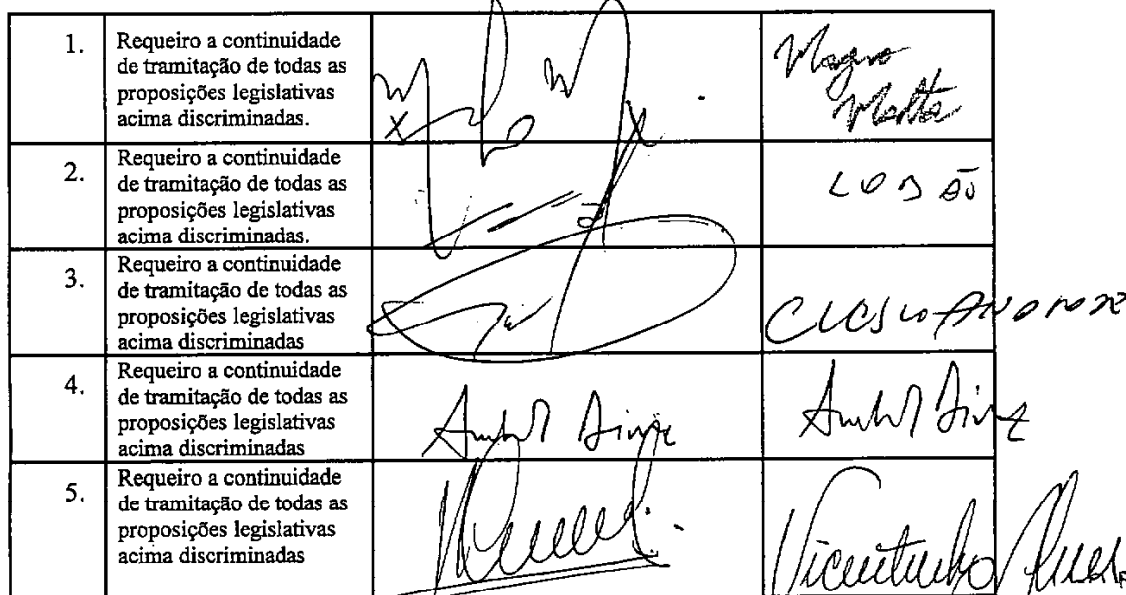 1.
Requeiro a continuidade
de tramitação de todas as
proposições legislativas
acima discriminadas.
Magno
Malta
2.
Requeiro a continuidade
de tramitação de todas as
proposições legislativas
acima discriminadas.
LOBÃO
3.
Requeiro a continuidade
de tramitação de todas as
proposições legislativas
acima discriminadas
4.
Requeiro a continuidade
de tramitação de todas as
proposições legislativas
acima discriminadas
5.
Requeiro a continuidade
de tramitação de todas as
proposições legislativas
acima discriminadas
Vicentinho